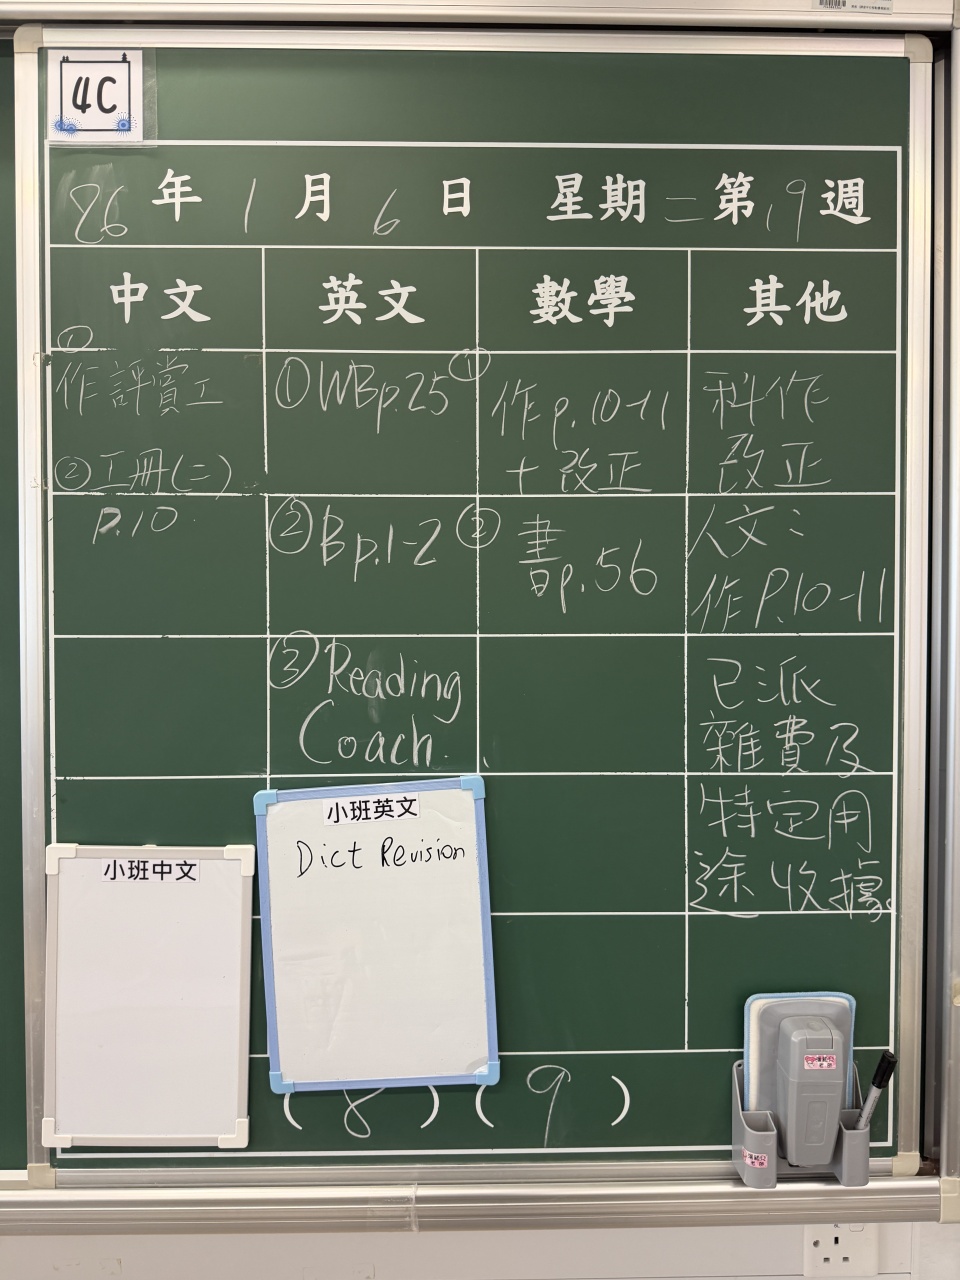 4C
26年1月6日 星期二第19週
中文 英文 數學 其他
①
作評賞工
②工冊(二)
P.10
①WBp.25
②Bp.1-2
③Reading
Coach.
①
作p.10-11
+改正
②書p.56
科作
改正
人文:
作P.10-11
已派
雜費及
特定用
途收據。
小班中文
小班英文
Dict Revision
(8)(9)